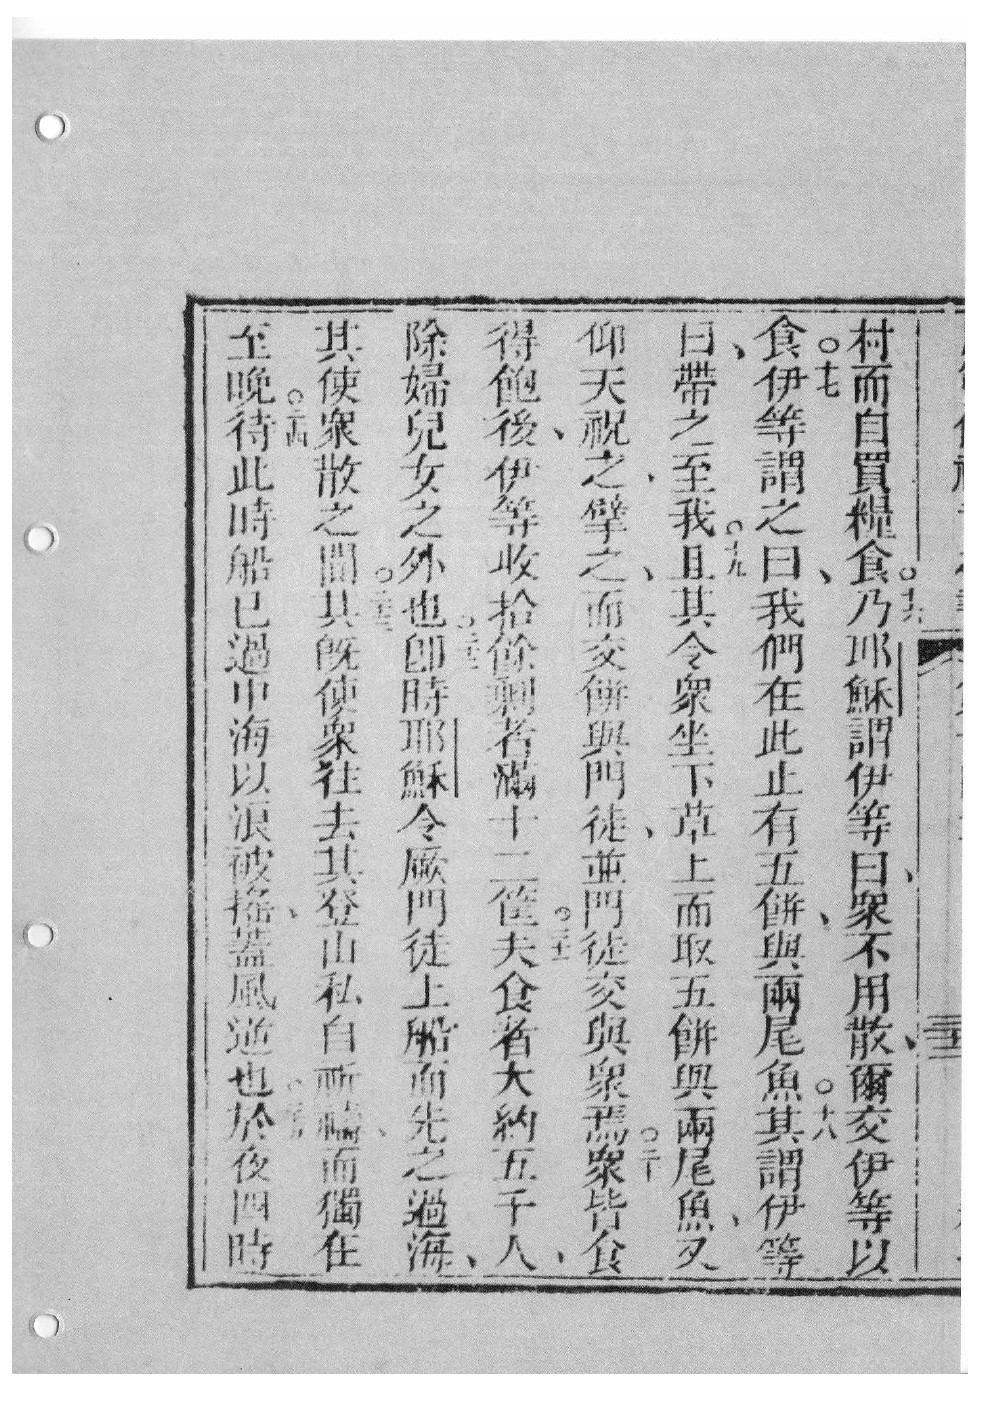 村而自買糧食〇十六乃耶穌謂伊等曰、衆不用散、爾交伊等以
食〇十七伊等謂之曰、我們在此止有五餅、與兩尾魚〇十八其謂伊等
曰、帶之至我〇十九且其令衆坐下草上而取五餅與兩尾魚、又
仰天祝之、擘之、而交餅與門徒、並門徒交與衆焉〇二十衆皆食
得飽後、伊等收拾餘剩者滿十二筐〇二十一夫食者大約五千人、
除婦兒女之外也〇二十二卽時耶穌令厥門徒上船而先之過海、
其使衆散之間〇二十三其旣使衆往去其登山私自祈禱、而獨在
至晚〇二十四待此時船已過中海以浪破搖、蓋風逆也〇二十五於夜四時